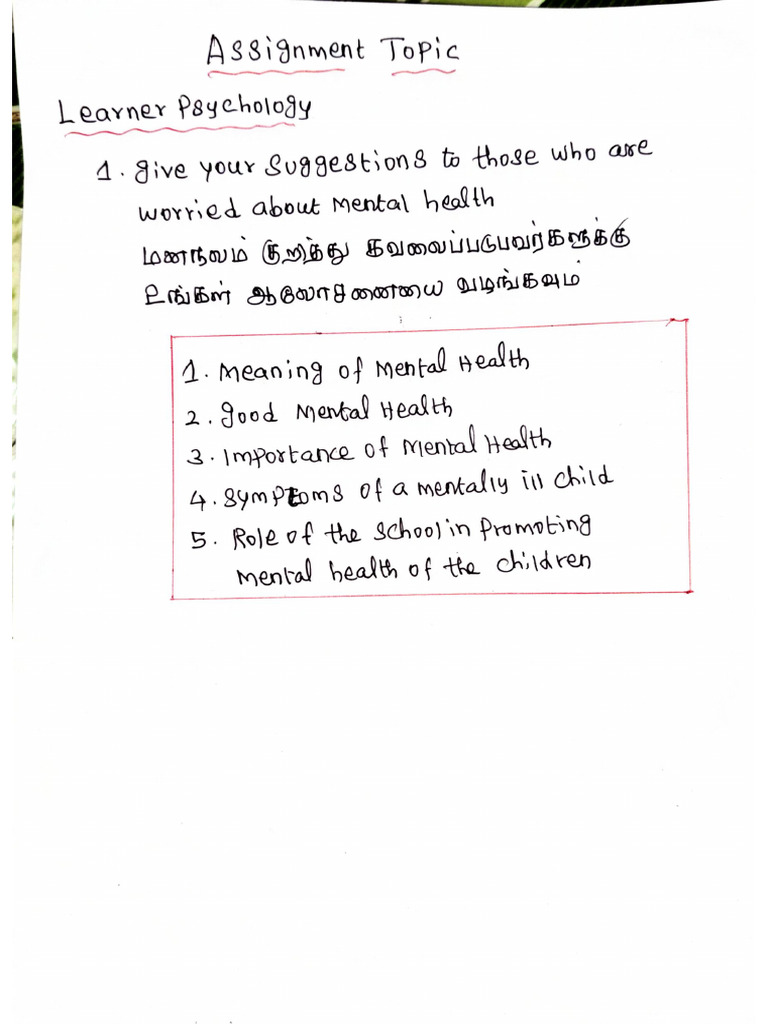 Assignment Topic
Learner Psychology
1. give your suggestions to those who are
worried about mental health
மனநலம் குறித்து கவலைப்படுபவர்களுக்கு
உங்கள் ஆலோசனையை வழங்கவும்
1. Meaning of Mental Health
2. good Mental Health
3. Importance of Mental Health
4. Symptoms of a mentally ill child
5. Role of the school in promoting
Mental health of the children